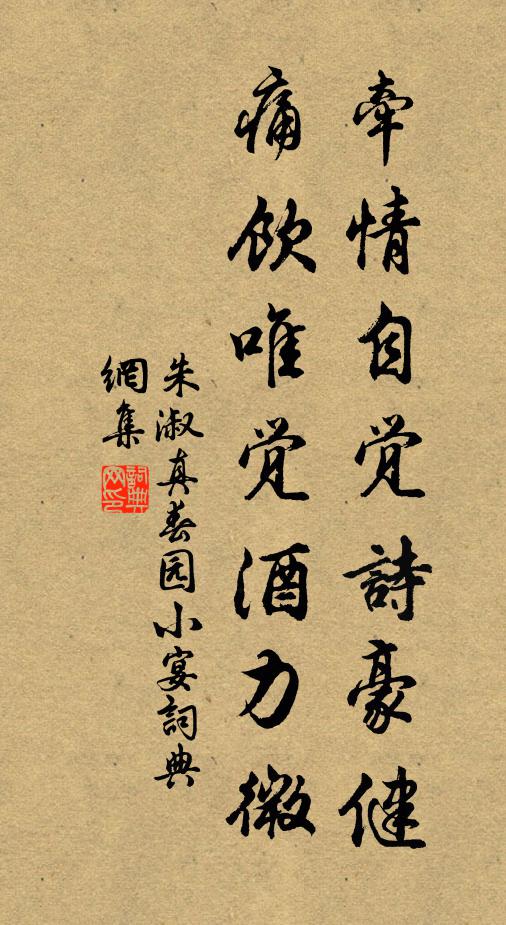 牽情自觉詩豪健
痛飲唯觉酒力微
朱淑真春园小宴詞典
網集
詞典
网印